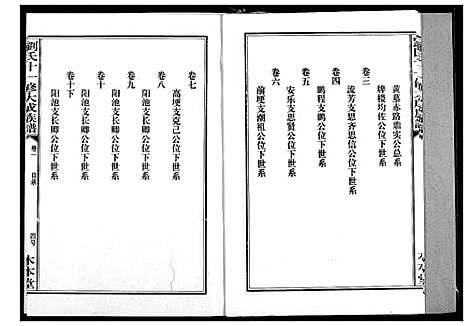 黄墓赤路鼎实公总系
牌楼均佐公位下世系
卷三
流芳支思齐思信公位下世系
卷四
鹏程支鹏公位下世系
卷五
安乐支思贤公位下世系
卷六
前埂支潮祖公位下世系
卷七
高埂支克己公位下世系
卷八
阳池支长卿公位下世系
卷九
阳池支长卿公位下世系
卷十
阳池支长卿公位下世系
卷十下
劉氏十一修大成族譜
卷一
目录
四号
木本堂